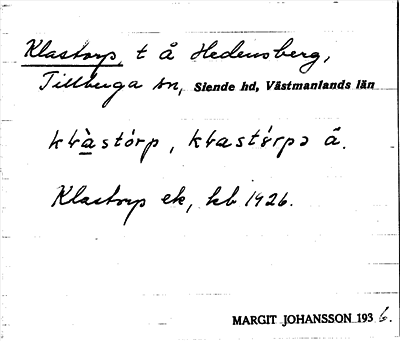 Klastorp, t å Hedensberg,
Tillinge sn, Siende hd, Västmanlands län
klàstórp, klastórpə å.
Klastorp ek, kb 1926.
MARGIT JOHANSSON 1936.